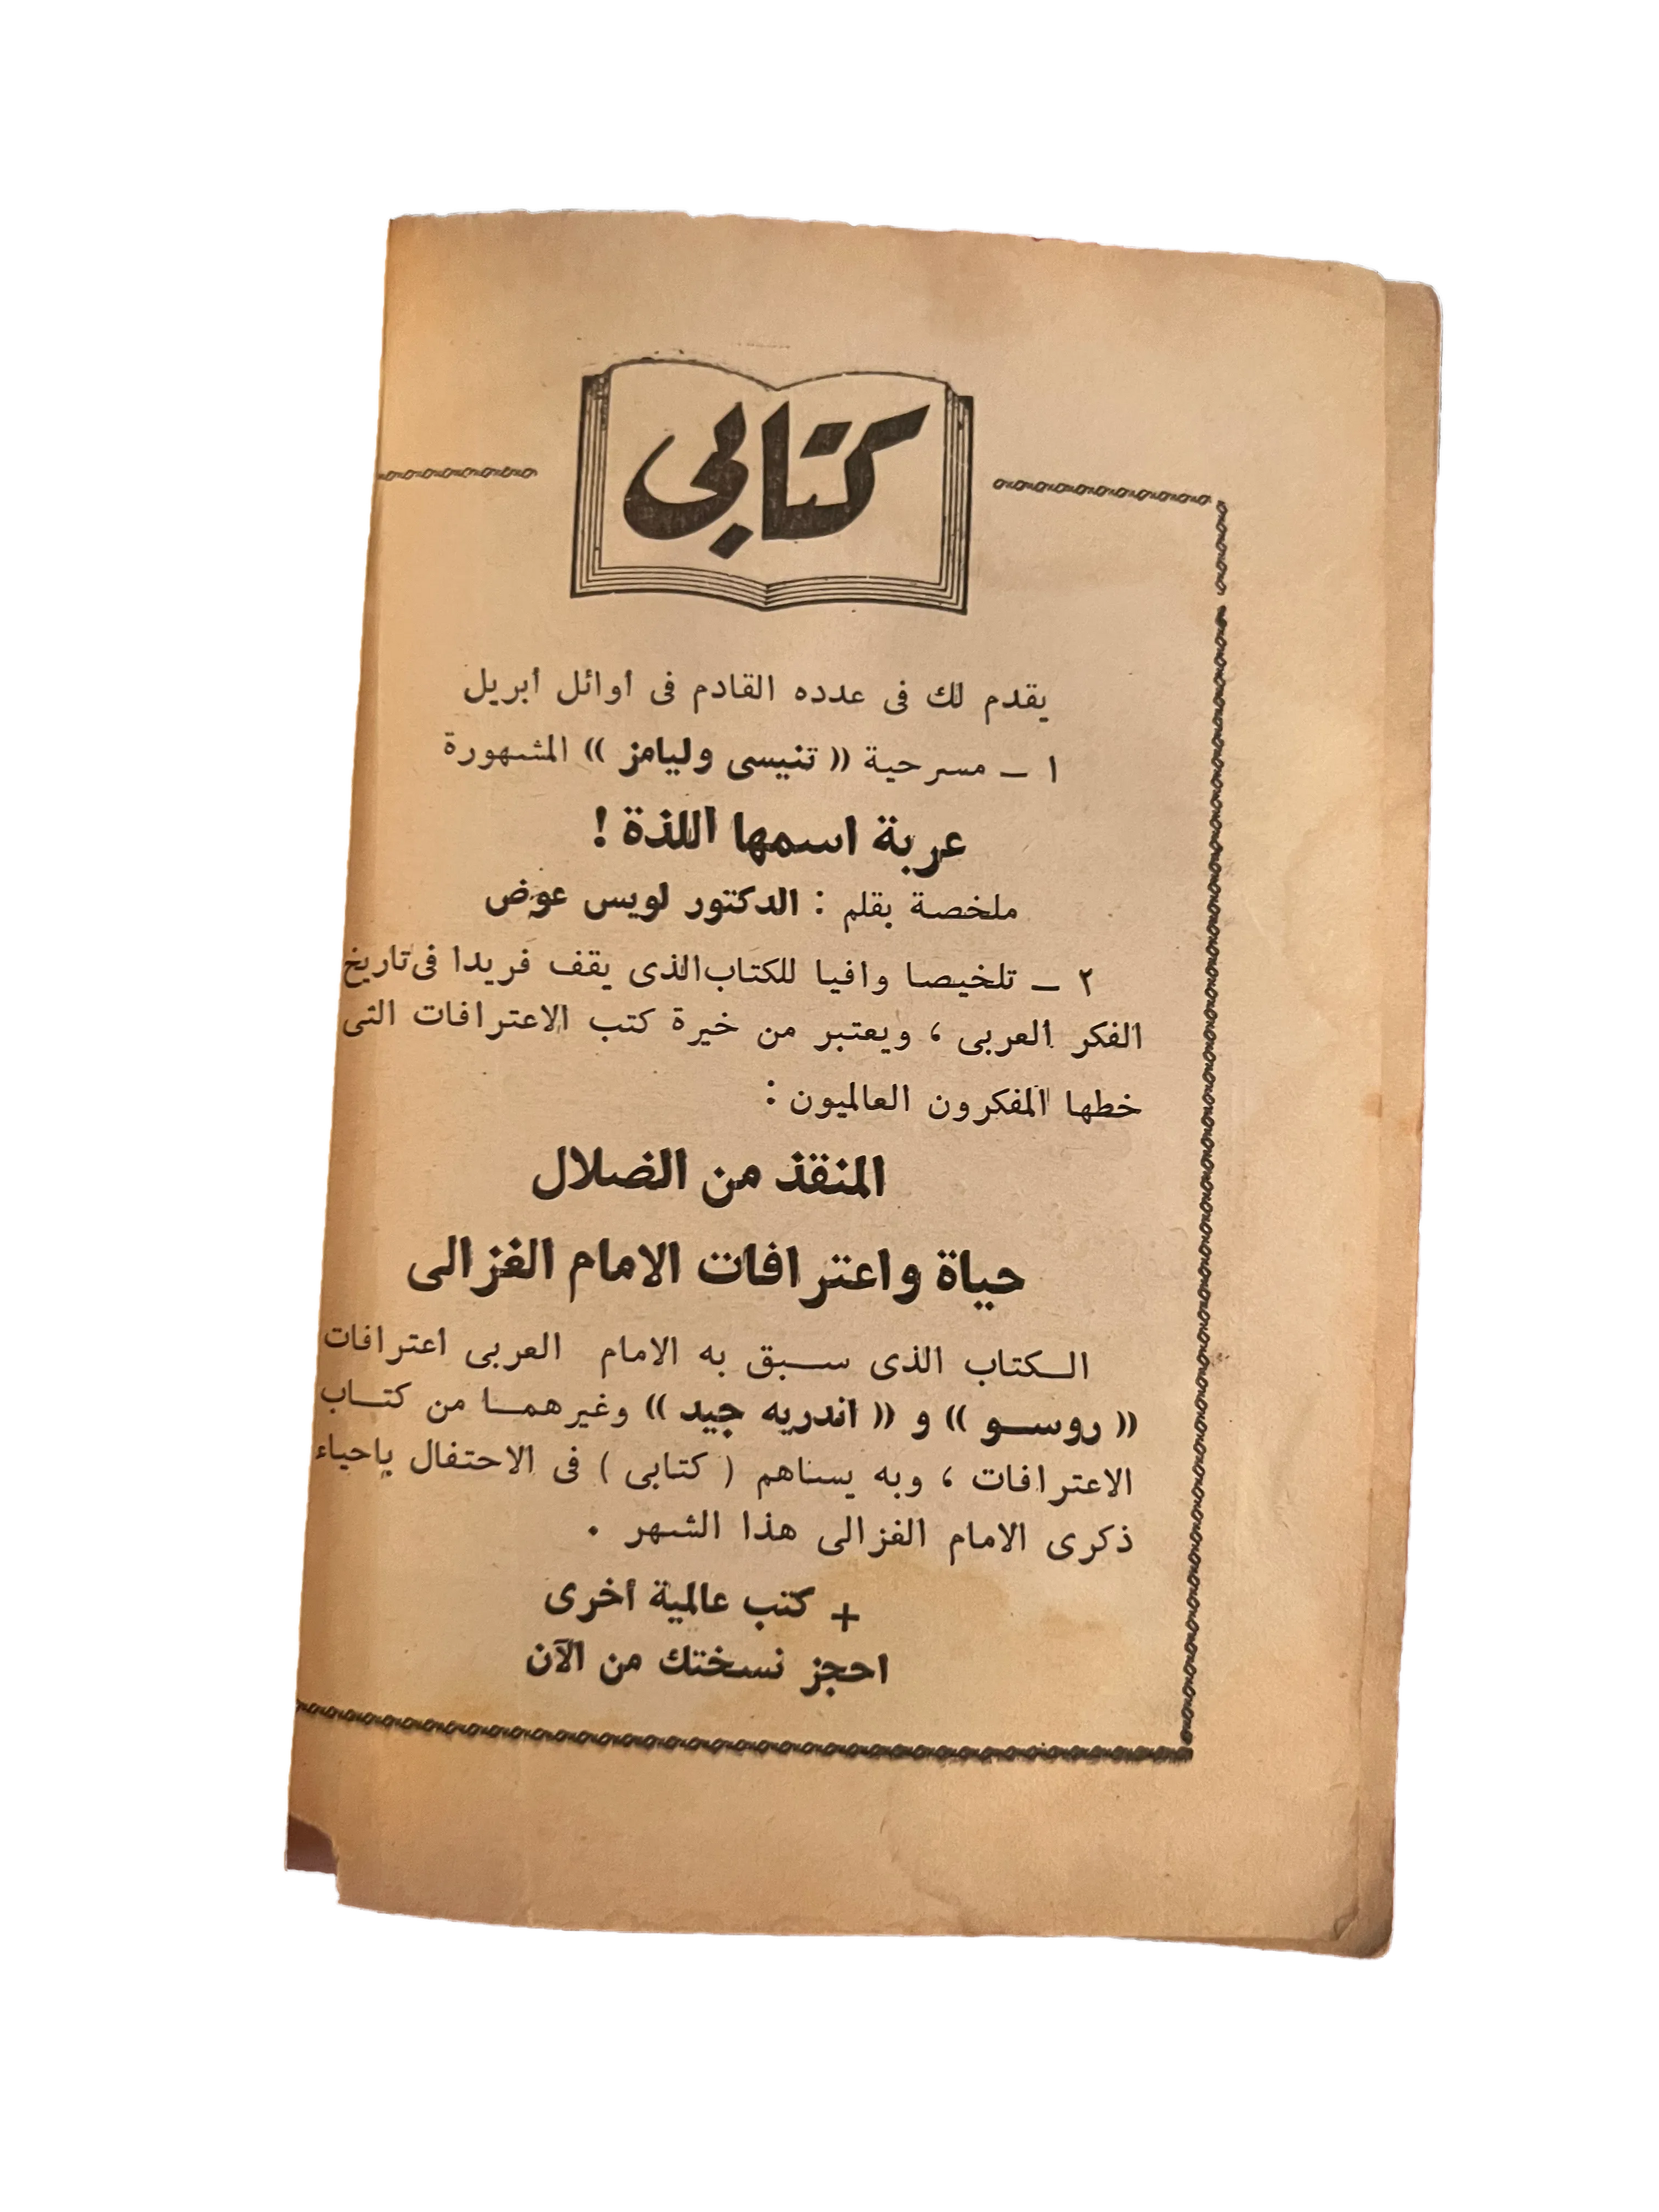 كتابى
يقدم لك فى عدده القادم فى أوائل أبريل
١ ــ مسرحية « تنيسى وليامز » المشهورة
عربة اسمها اللذة !
ملخصة بقلم : الدكتور لويس عوض
٢ ــ تلخيصا وافيا للكتاب الذى يقف فريدا فى تاريخ
الفكر العربى ، ويعتبر من خيرة كتب الاعترافات التى
خطها المفكرون العالميون :
المنقذ من الضلال
حياة واعترافات الامام الغزالى
الـكتاب الذى سـبق به الامام العربى اعترافات
« روسـو » و « اندريه جيد » وغيرهمـا من كتـاب
الاعترافات ، وبه يساهم ( كتابى ) فى الاحتفال بإحياء
ذكرى الامام الغزالى هذا الشهر .
+ كتب عالمية أخرى
احجز نسختك من الآن